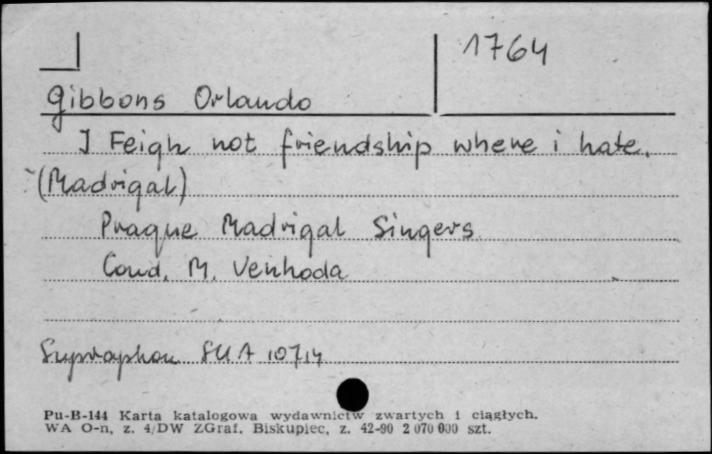 1764
Gibbons Orlando
I Feign not friendship where i hate.
(Madrigal)
Prague Madrigal Singers
Cond. M. Venhoda
Supraphon SUA 10714
Pu-B-144 Karta katalogowa wydawnictw zwartych i ciągłych.
WA O-n, z. 4/DW ZGraf. Biskupiec, z. 42-90 2 070 000 szt.